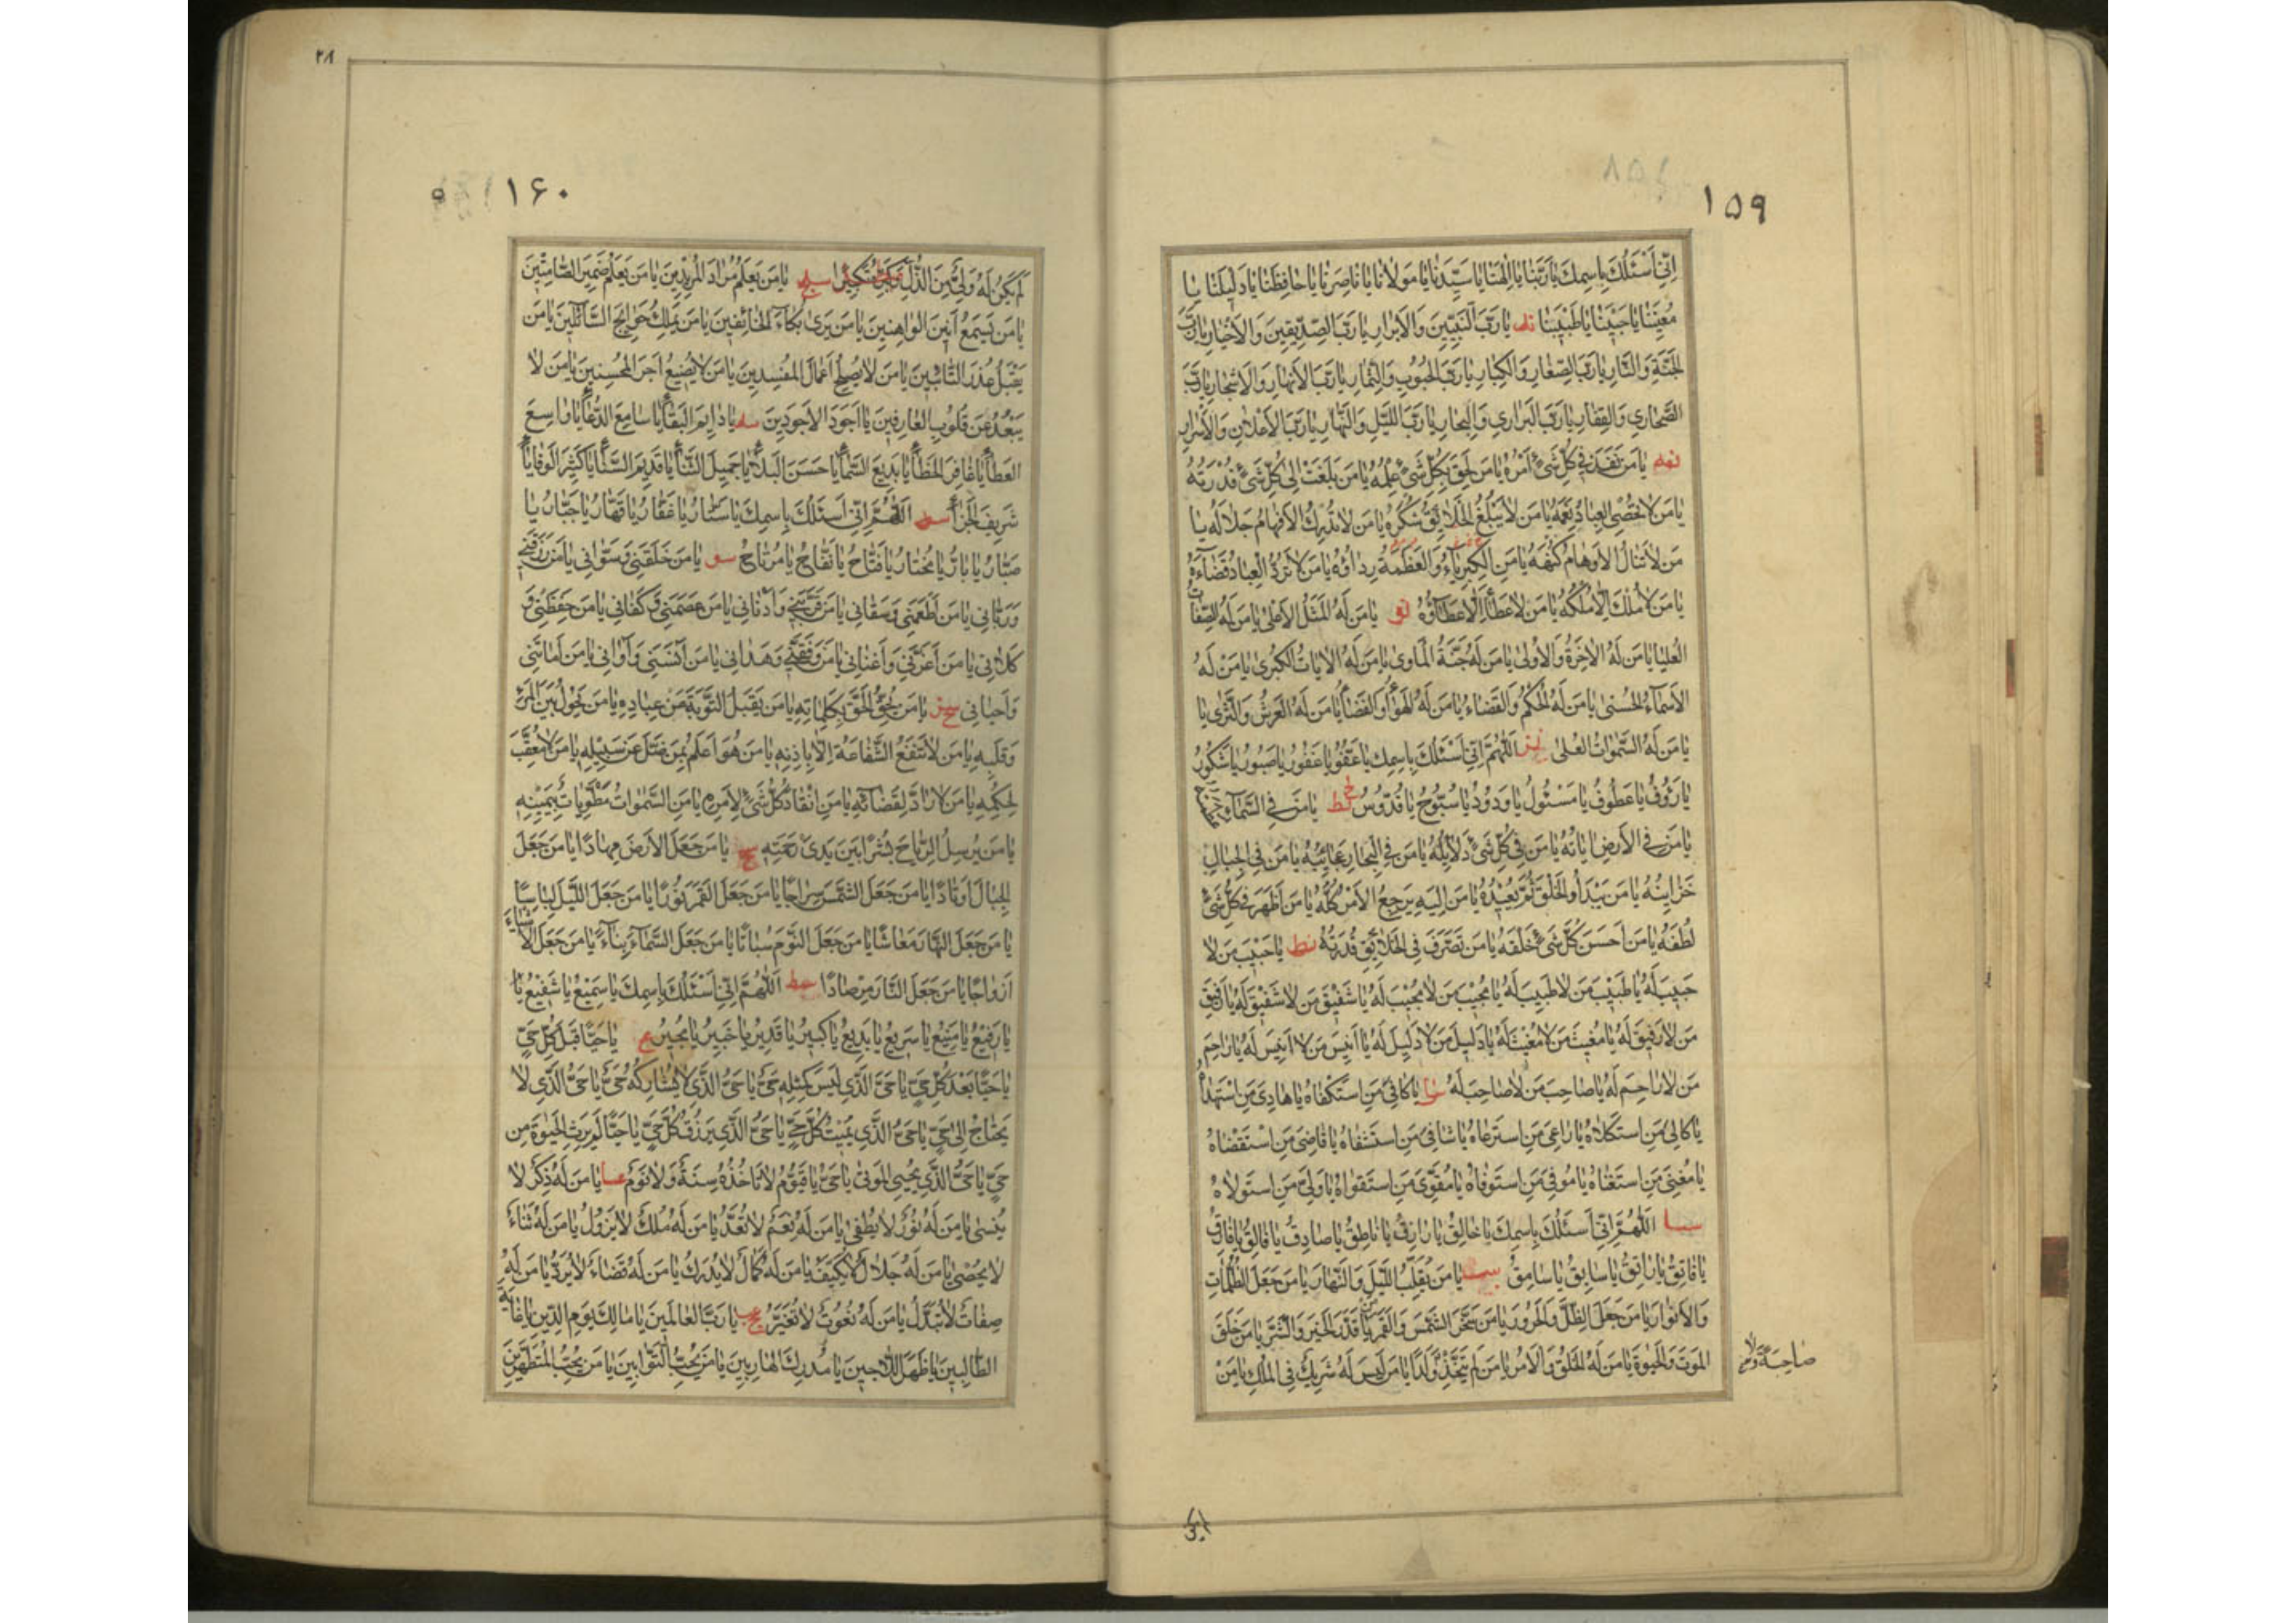 ١٥٩
اِنّي اَسْئَلُكَ بِاسمِكَ يا رَبَّنا يا اِلهَنا يا سَيِّدَنا يا مَولانا يا ناصِرَنا يا حافِظَنا يا دَليلَنا يا
مُعينَنا يا حَبيبَنا يا طَبيبَنا ند يا رَبَّ النَّبِيّينَ وَالاَبرارِ يا رَبَّ الصِّدّيقينَ وَالاَخيارِ يا رَبَّ
الجَنَّةِ وَالنّارِ يا رَبَّ الصِّغارِ وَالكِبارِ يا رَبَّ الحُبوبِ وَالثِّمارِ يا رَبَّ الاَنهارِ وَالاَشجارِ يا رَبَّ
الصَّحاري وَالقِفارِ يا رَبَّ البَراري وَالبِحارِ يا رَبَّ اللَّيلِ وَالنَّهارِ يا رَبَّ الاَعلانِ وَالاَسرارِ
نه يا مَن نَفَذَ في كُلِّ شَيءٍ اَمرُهُ يا مَن لَحِقَ بِكُلِّ شَيءٍ عِلمُهُ يا مَن بَلَغَت اِلى كُلِّ شَيءٍ قُدرَتُهُ
يا مَن لا تُحصِي العِبادُ نِعَمَهُ يا مَن لا يَبلُغُ الخَلائِقُ شُكرَهُ يا مَن لا تُدرِكُ الاَفهامُ جَلالَهُ يا
مَن لا تَنالُ الاَوهامُ كُنهَهُ يا مَنِ الكِبرِياءُ وَالعَظَمَةُ رِداؤُهُ يا مَن لا تَرُدُّ العِبادُ قَضاءَهُ
يا مَن لا مُلكَ اِلّا مُلكُهُ يا مَن لا عَطاءَ اِلّا عَطاؤُهُ نو يا مَن لَهُ المَثَلُ الاَعلى يا مَن لَهُ الصِّفاتُ
العُليا يا مَن لَهُ الاخِرَةُ وَالاُولى يا مَن لَهُ جَنَّةُ المَاوى يا مَن لَهُ الاياتُ الكُبرى يا مَن لَهُ
الاَسماءُ الحُسنى يا مَن لَهُ الحُكمُ وَالقَضاءُ يا مَن لَهُ الهَواءُ وَالفَضاءُ يا مَن لَهُ العَرشُ وَالثَّرى يا
يا مَن لَهُ السَّمواتُ العُلى نز اَللّهُمَّ اِنّي اَسْئَلُكَ بِاسمِكَ يا عَفُوُّ يا غَفورُ يا صَبورُ يا شَكورُ
يا رَؤُفُ يا عَطوفُ يا مَسْئولُ يا وَدودُ يا سُبّوحُ يا قُدّوسُ نح يا مَن فِي السَّماءِ عَظَمَتُهُ
يا مَن فِي الاَرضِ اياتُهُ يا مَن في كُلِّ شَيءٍ دَلايِلُهُ يا مَن فِي البِحارِ عَجائِبُهُ يا مَن فِي الجِبالِ
خَزاينُهُ يا مَن يَبدَأُ الخَلقَ ثُمَّ يُعيدُهُ يا مَن اِلَيهِ يَرجِعُ الاَمرُ كُلُّهُ يا مَن اَظهَرَ في كُلِّ شَيءٍ
لُطفَهُ يا مَن اَحسَنَ كُلَّ شَيءٍ خَلقَهُ يا مَن تَصَرَّفَ فِي الخَلائِقِ قُدرَتُهُ نط يا حَبيبَ مَن لا
حَبيبَ لَهُ يا طَبيبَ مَن لا طَبيبَ لَهُ يا مُجيبَ مَن لا مُجيبَ لَهُ يا شَفيقَ مَن لا شَفيقَ لَهُ يا رَفيقَ
مَن لا رَفيقَ لَهُ يا مُغيثَ مَن لا مُغيثَ لَهُ يا دَليلَ مَن لا دَليلَ لَهُ يا اَنيسَ مَن لا اَنيسَ لَهُ يا راحِمَ
مَن لا راحِمَ لَهُ يا صاحِبَ مَن لا صاحِبَ لَهُ يا كافِيَ مَنِ استَكفاهُ يا هادِيَ مَنِ استَهداهُ
يا كالِيَ مَنِ استَكلاهُ يا راعِيَ مَنِ استَرعاهُ يا شافِيَ مَنِ استَشفاهُ يا قاضِيَ مَنِ استَقضاهُ
يا مُغنِيَ مَنِ استَغناهُ يا موفِيَ مَنِ استَوفاهُ يا مُقَوِّيَ مَنِ استَقواهُ يا وَلِيَّ مَنِ استَولاهُ
سا اَللّهُمَّ اِنّي اَسْئَلُكَ بِاسمِكَ يا خالِقُ يا رازِقُ يا ناطِقُ يا صادِقُ يا فالِقُ يا فارِقُ
يا فاتِقُ يا راتِقُ يا سابِقُ يا سامِقُ سب يا مَن يُقَلِّبُ اللَّيلَ وَالنَّهارَ يا مَن جَعَلَ الظُّلُماتِ
وَالاَنوارَ يا مَن جَعَلَ الظِّلَّ وَالحَرورَ يا مَن سَخَّرَ الشَّمسَ وَالقَمَرَ يا مَن قَدَّرَ الخَيرَ وَالشَّرَّ يا مَن خَلَقَ
المَوتَ وَالحَيوةَ يا مَن لَهُ الخَلقُ وَالاَمرُ يا مَن لَم يَتَّخِذ وَلَدًا يا مَن لَيسَ لَهُ شَريكٌ فِي المُلكِ يا مَن
صاحِبَةً وَلا
٢٨
١۶٠
لَم يَكُن لَهُ وَلِيٌّ مِنَ الذُّلِّ وَكَبِّرهُ تَكبيرًا سج يا مَن يَعلَمُ مُرادَ المُريدينَ يا مَن يَعلَمُ ضَميرَ الصّامِتينَ
يا مَن يَسمَعُ اَنينَ الواهِنينَ يا مَن يَرى بُكاءَ الخائِفينَ يا مَن يَملِكُ حَوائِجَ السّائِلينَ يا مَن
يَقبَلُ عُذرَ التّائِبينَ يا مَن لا يُصلِحُ اَعمالَ المُفسِدينَ يا مَن لا يُضيعُ اَجرَ المُحسِنينَ يا مَن لا
يَبعُدُ عَن قُلوبِ العارِفينَ يا اَجوَدَ الاَجوَدينَ سد يا دايِمَ البَقاءِ يا سامِعَ الدُّعاءِ يا واسِعَ
العَطاءِ يا غافِرَ الخَطاءِ يا بَديعَ السَّماءِ يا حَسَنَ البَلاءِ يا جَميلَ الثَّناءِ يا قَديمَ السَّناءِ يا كَثيرَ الوَفاءِ يا
شَريفَ الجَزاءِ اَللّهُمَّ اِنّي اَسْئَلُكَ بِاسمِكَ يا سَتّارُ يا غَفّارُ يا قَهّارُ يا جَبّارُ يا
صَبّارُ يا بارُّ يا مُختارُ يا فَتّاحُ يا نَفّاحُ يا مُرتاحُ سو يا مَن خَلَقَني وَسَوّاني يا مَن رَزَقَني
وَرَبّاني يا مَن اَطعَمَني وَسَقاني يا مَن قَرَّبَني وَاَدناني يا مَن عَصَمَني وَكَفاني يا مَن حَفِظَني وَ
كَلاني يا مَن اَعَزَّني وَاَغناني يا مَن وَفَّقَني وَهَداني يا مَن آنَسَني وَآواني يا مَن اَماتَني
وَاَحياني سز يا مَن يُحِقُّ الحَقَّ بِكَلِماتِهِ يا مَن يَقبَلُ التَّوبَةَ عَن عِبادِهِ يا مَن يَحولُ بَينَ المَرءِ
وَقَلبِهِ يا مَن لا تَنفَعُ الشَّفاعَةُ اِلّا بِاِذنِهِ يا مَن هُوَ اَعلَمُ بِمَن ضَلَّ عَن سَبيلِهِ يا مَن لا مُعَقِّبَ
لِحُكمِهِ يا مَن لا رادَّ لِقَضائِهِ يا مَنِ انقادَ كُلُّ شَيءٍ لِاَمرِهِ يا مَنِ السَّمواتُ مَطوِيّاتٌ بِيَمينِهِ
يا مَن يُرسِلُ الرِّياحَ بُشرًا بَينَ يَدَي رَحمَتِهِ سح يا مَن جَعَلَ الاَرضَ مِهادًا يا مَن جَعَلَ
الجِبالَ اَوتادًا يا مَن جَعَلَ الشَّمسَ سِراجًا يا مَن جَعَلَ القَمَرَ نورًا يا مَن جَعَلَ اللَّيلَ لِباسًا
يا مَن جَعَلَ النَّهارَ مَعاشًا يا مَن جَعَلَ النَّومَ سُباتًا يا مَن جَعَلَ السَّماءَ بِناءً يا مَن جَعَلَ الاَشياءَ
اَزواجًا يا مَن جَعَلَ النّارَ مِرصادًا سط اَللّهُمَّ اِنّي اَسْئَلُكَ بِاسمِكَ يا سَميعُ يا شَفيعُ يا
يا رَفيعُ يا مَنيعُ يا سَريعُ يا بَديعُ يا كَبيرُ يا قَديرُ يا خَبيرُ يا مُجيرُ ع يا حَيًّا قَبلَ كُلِّ حَيٍّ
يا حَيًّا بَعدَ كُلِّ حَيٍّ يا حَيُّ الَّذي لَيسَ كَمِثلِهِ حَيٌّ يا حَيُّ الَّذي لا يُشارِكُهُ حَيٌّ يا حَيُّ الَّذي لا
يَحتاجُ اِلى حَيٍّ يا حَيُّ الَّذي يُميتُ كُلَّ حَيٍّ يا حَيُّ الَّذي يَرزُقُ كُلَّ حَيٍّ يا حَيًّا لَم يَرِثِ الحَيوةَ مِن
حَيٍّ يا حَيُّ الَّذي يُحيِي المَوتى يا حَيُّ يا قَيّومُ لا تَاخُذُهُ سِنَةٌ وَلا نَومٌ عا يا مَن لَهُ ذِكرٌ لا
يُنسى يا مَن لَهُ نورٌ لا يُطفى يا مَن لَهُ نِعَمٌ لا تُعَدُّ يا مَن لَهُ مُلكٌ لا يَزولُ يا مَن لَهُ ثَناءٌ
لا يُحصى يا مَن لَهُ جَلالٌ لا يُكَيَّفُ يا مَن لَهُ كَمالٌ لا يُدرَكُ يا مَن لَهُ قَضاءٌ لا يُرَدُّ يا مَن لَهُ
صِفاتٌ لا تُبَدَّلُ يا مَن لَهُ نُعوتٌ لا تُغَيَّرُ عب يا رَبَّ العالَمينَ يا مالِكَ يَومِ الدّينِ يا غايَةَ
الطّالِبينَ يا ظَهرَ اللّاجينَ يا مُدرِكَ الهارِبينَ يا مَن يُحِبُّ التَّوّابينَ يا مَن يُحِبُّ المُتَطَهِّرينَ